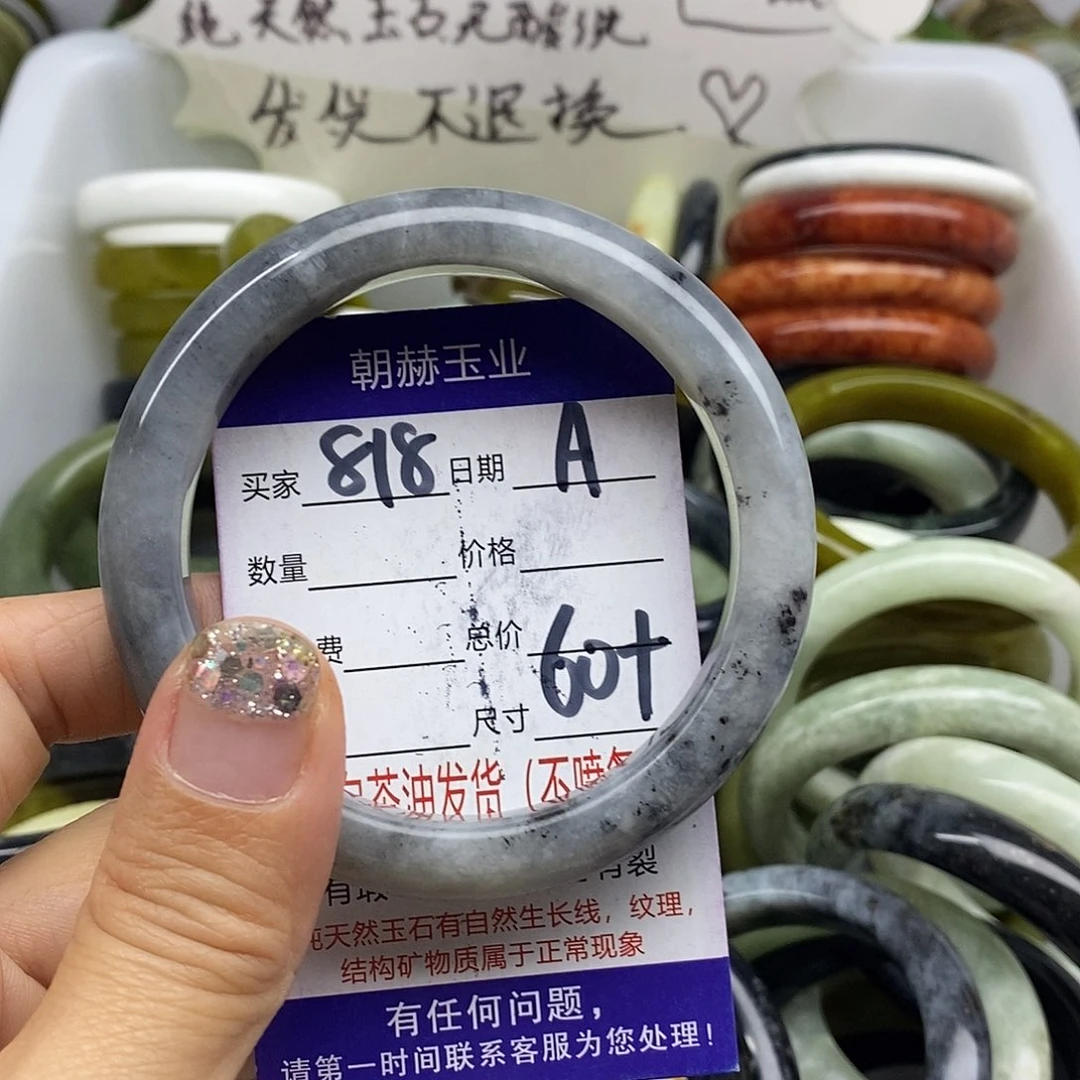 纯天然玉石无酸洗
发货不退换
朝赫玉业
买家 818 日期 A
数量 价格
费 总价
尺寸 60+
茶油发货（不喷
有瑕 有裂
纯天然玉石有自然生长线，纹理，
结构矿物质属于正常现象
有任何问题，
请第一时间联系客服为您处理！